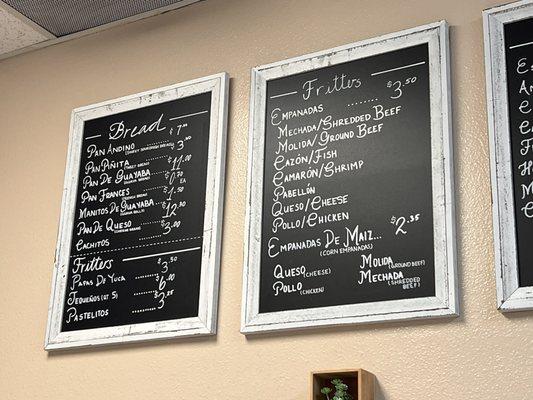 Bread
Pan Andino $7.00
(Sweet Sourdough Bread)
Pan Piñita $3.90
(Sweet Bread)
Pan De Guayaba $11.00
(Guava Bread)
Pan Frances $0.70 EA
(French Bread)
Manitos De Guayaba $1.50
(Guava Balls)
Pan De Queso $12.00
(Cheese Bread)
Cachitos $3.00
Fritters
Papas De Yuca $3.50
Tequeños (at 5) $6.00
Pastelitos $3.25
Fritters
Empanadas $3.50
Mechada/Shredded Beef
Molida/Ground Beef
Cazón/Fish
Camarón/Shrimp
Pabellón
Queso/Cheese
Pollo/Chicken
Empanadas De Maiz... $2.35
(Corn Empanadas)
Queso (Cheese)
Pollo (Chicken)
Molida (Ground Beef)
Mechada (Shredded Beef)